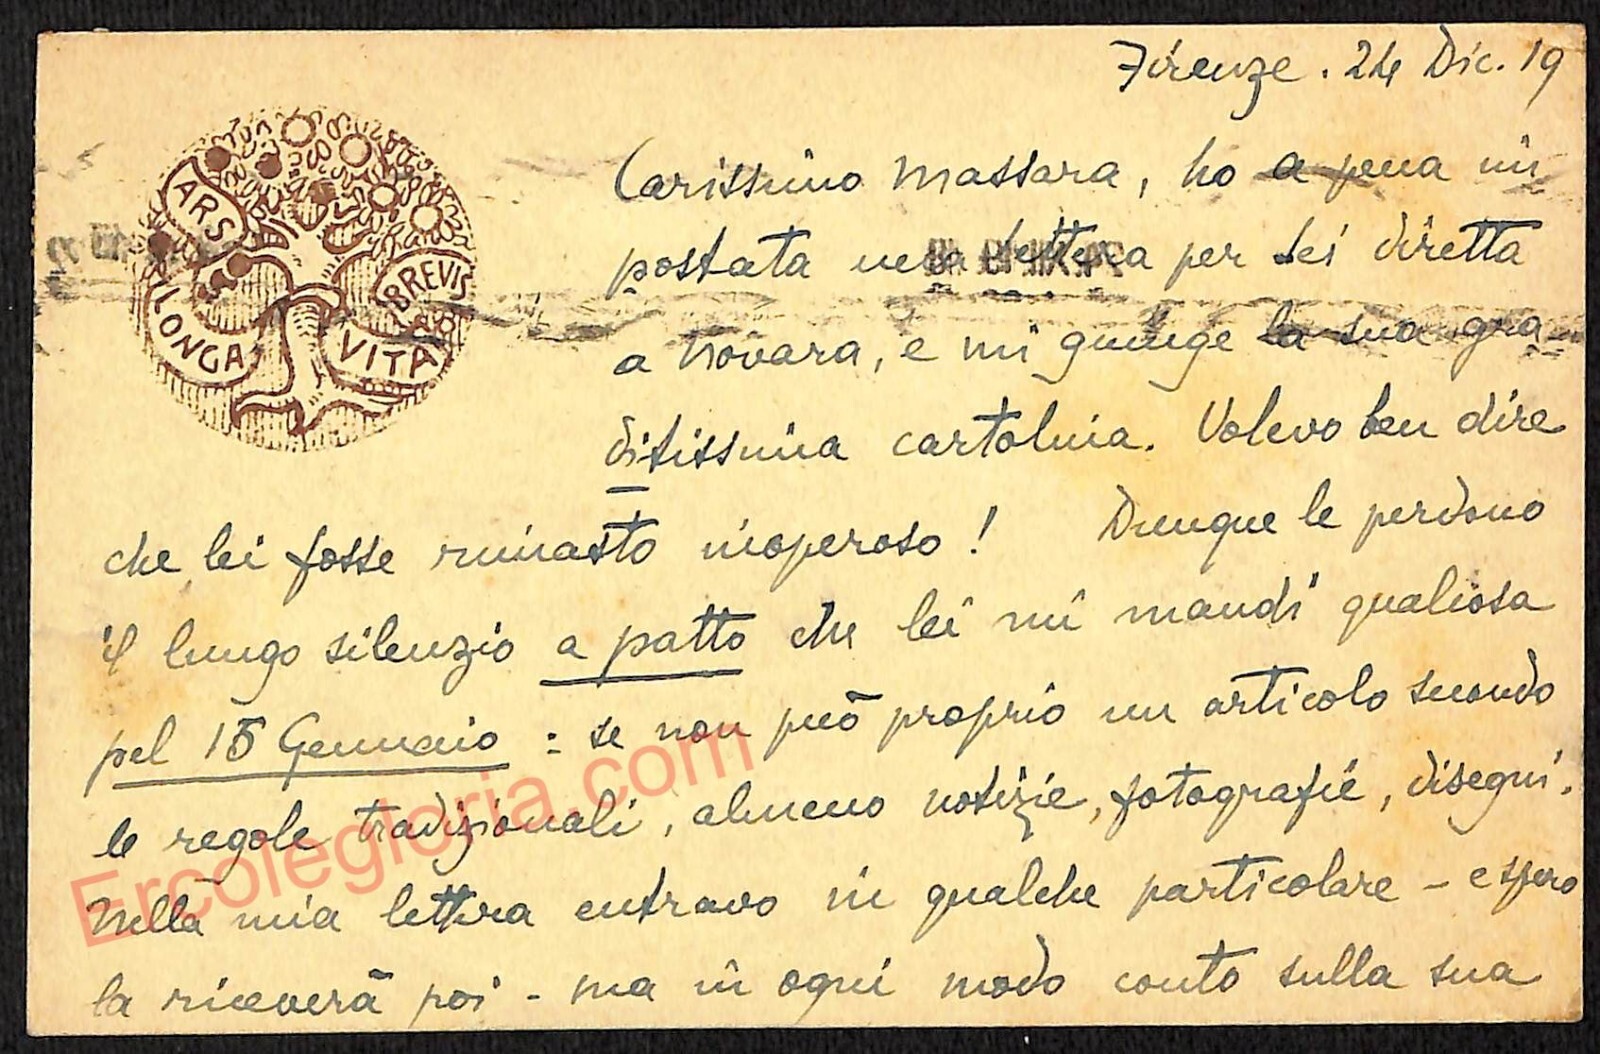 Firenze. 24 Dic. 19
ARS
LONGA
BREVIS
VITA
Carissimo Massara, ho a pena im
postata una lettera per lei diretta
a Novara, e mi giunge la sua gra
ditissima cartolina. Volevo ben dire
che lei fosse rimasto inoperoso! Dunque le perdono
il lungo silenzio a patto che lei mi mandi qualcosa
pel 15 Gennaio: se non può proprio un articolo secondo
le regole tradizionali, almeno notizie, fotografie, disegni.
Nella mia lettera entravo in qualche particolare - e spero
la riceverà poi - ma in ogni modo conto sulla sua
Ercolegloria.com